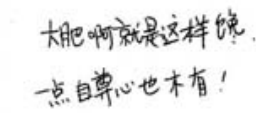 大肥啊就是这样馋.
一点自尊心也木有！